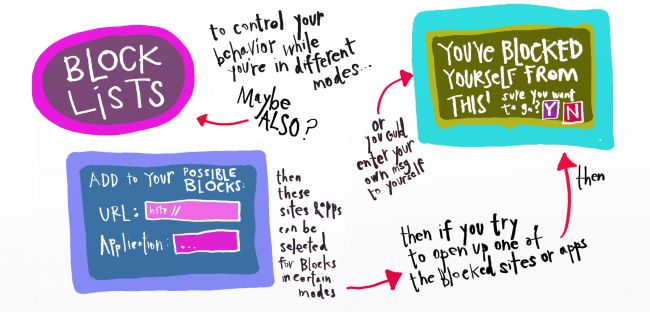 BLOCK
LiSTS
to control your
behavior while
you're in different
modes...
Maybe
ALSO?
ADD to YOUR POSSIBLE
BLOCKS:
URL: http //
Application: ...
then
these
sites & apps
can be
selected
for Blocks
in certain
modes
then if you try
to open up one of
the blocked sites or apps
then
or
you could
enter your
own msg
to yourself
YOU'VE BLOCKED
YOURSELF FROM
THIS' sure you want
to go? Y N